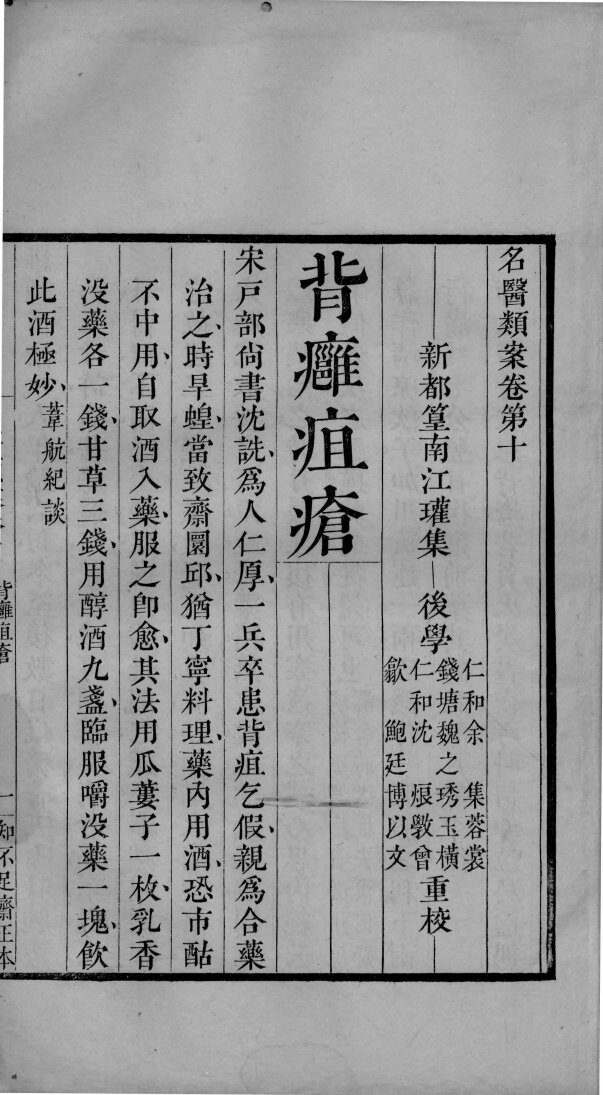 名醫類案卷第十
新都篁南江瓘集　後學
仁和余　集蓉裳
錢塘魏之琇玉橫
仁和沈　烺斅曾
歙　鮑廷博以文
重校
背癰疽瘡
宋戸部尚書沈詵爲人仁厚一兵卒患背疽乞假親爲合藥
治之時旱蝗當致齋圜邱猶丁寧料理藥內用酒恐市酤
不中用自取酒入藥服之卽愈其法用瓜蔞子一枚乳香
没藥各一錢甘草三錢用醇酒九盞臨服嚼没藥一塊飲
此酒極妙葦航紀談
背癰疽瘡
一
知不足齋正本